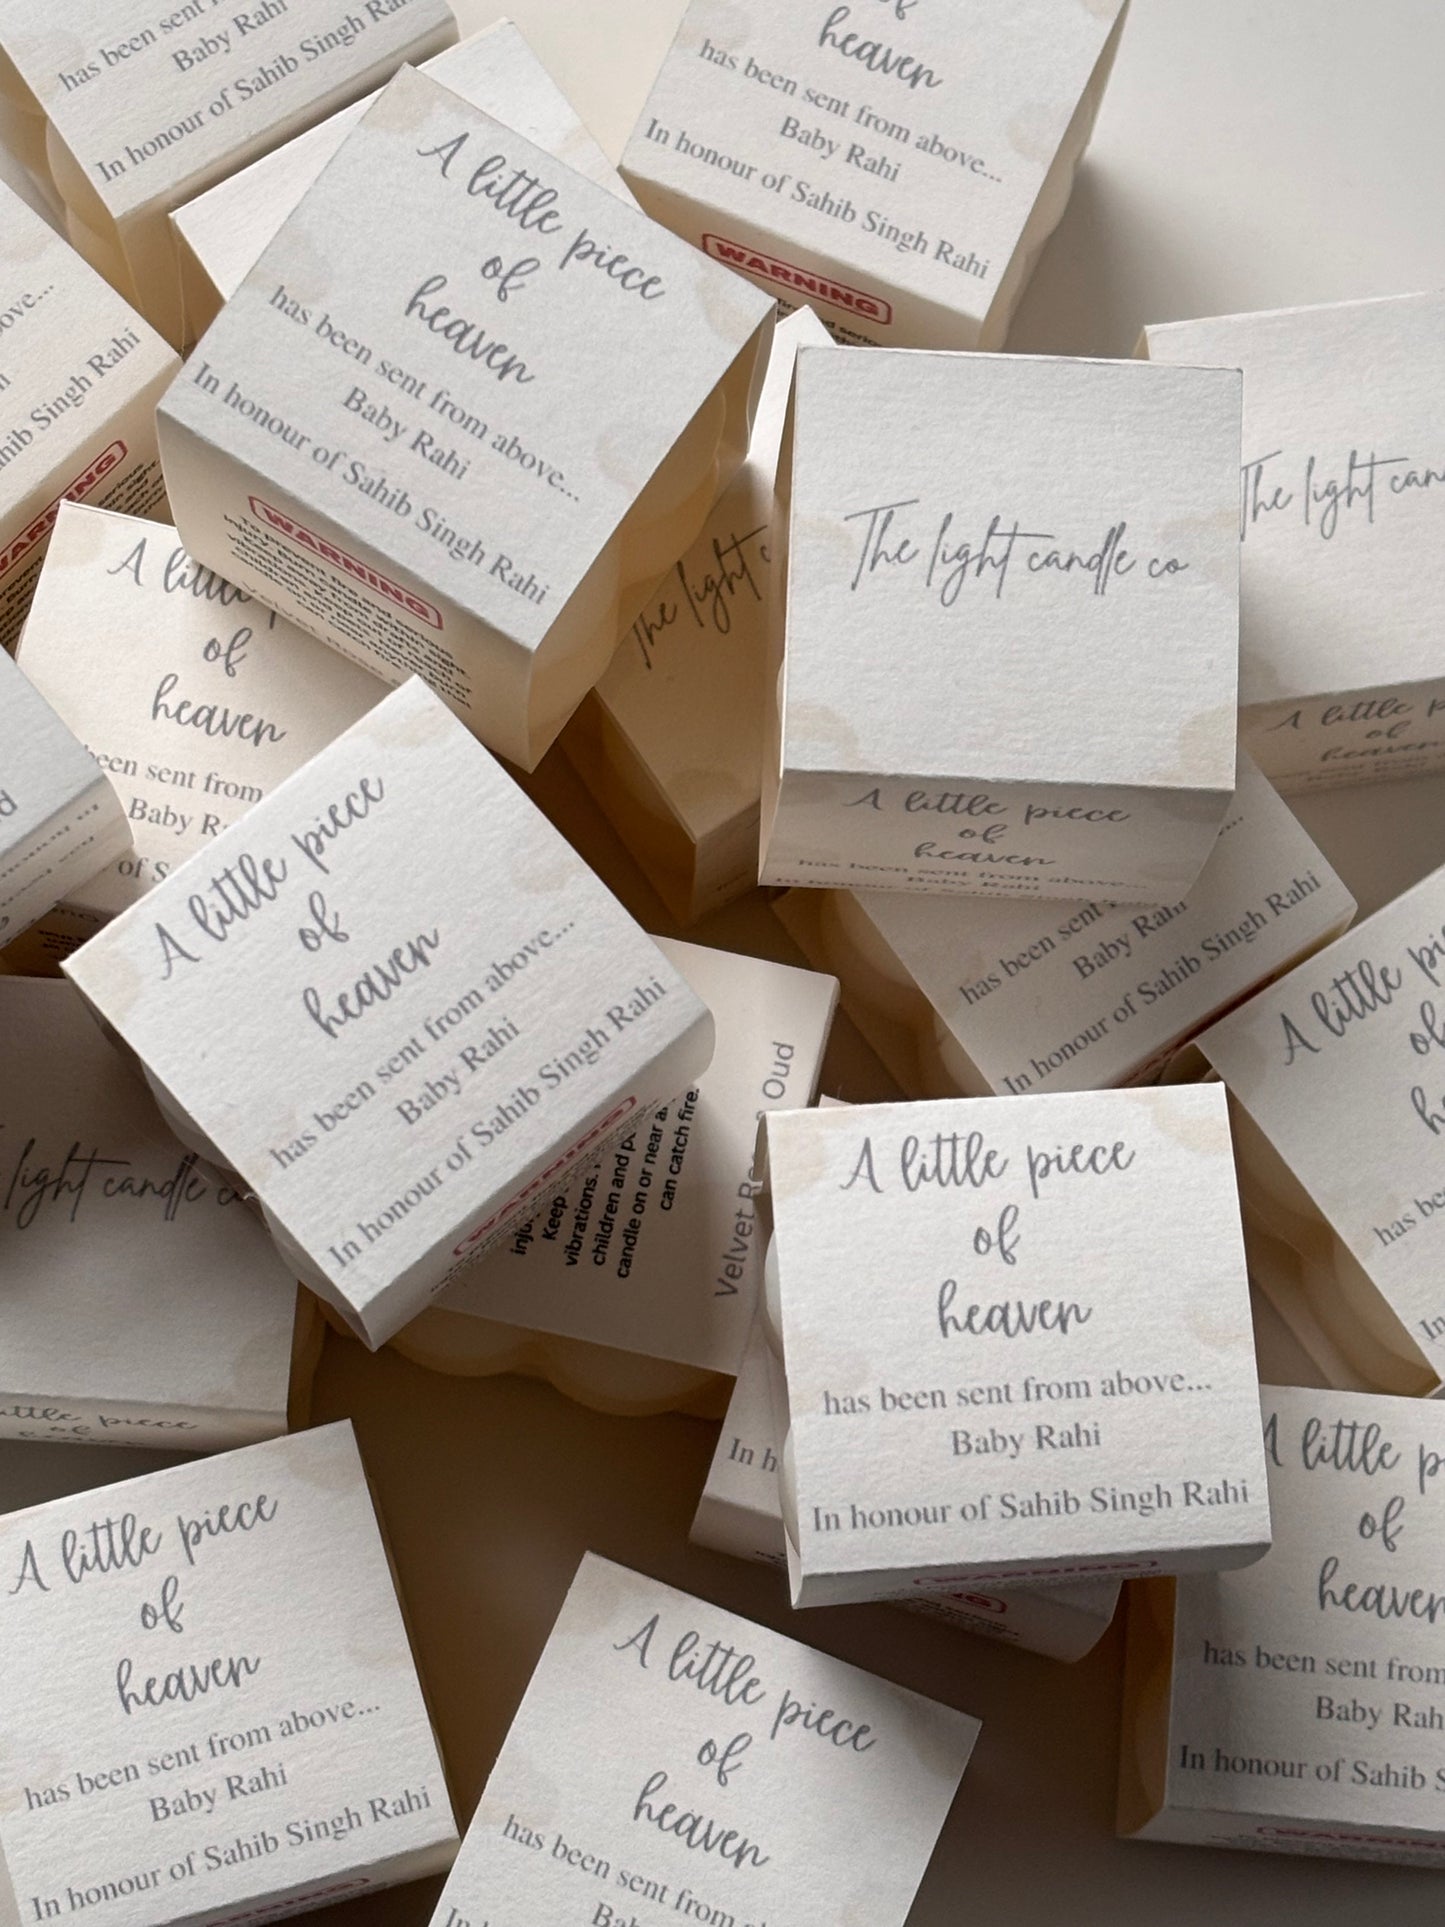 has been sent
Baby Rahi
In honour of Sahib Singh Rahi
of
heaven
has been sent from above...
Baby Rahi
In honour of Sahib Singh Rahi
WARNING
A little piece
of
heaven
has been sent from above...
Baby Rahi
In honour of Sahib Singh Rahi
WARNING
To prevent fire and serious
Singh Rahi
WARNING
The light candle co
A little piece
of
heaven
has been sent from above...
Baby Rahi
The light
The light
A little
of
heaven
A little
of
heaven
been sent from
Baby
of
A little piece
of
heaven
has been sent from above...
Baby Rahi
In honour of Sahib Singh Rahi
WARNING
Keep
vibrations.
children and
candle on or near
can catch fire.
Velvet Oud
has been sent
Baby Rahi
In honour of Sahib Singh Rahi
A little
has
In
light candle
little piece
of
A little piece
of
heaven
has been sent from above...
Baby Rahi
In honour of Sahib Singh Rahi
WARNING
In
A little piece
of
heaven
has been sent from above...
Baby Rahi
In honour of Sahib Singh Rahi
WARNING
A little piece
of
heaven
has been sent from
In
A little
of
heaven
has been sent from
Baby
In honour of Sahib
WARNING